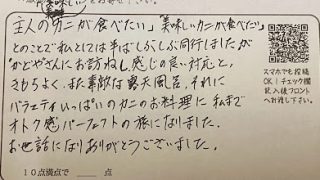 主人の「カニが食べたい」「美味しいカニが食べたい」
とのことで私としては半ばしぶしぶ同行しましたが
かどやさんにお訪ねし感じの良い対応と、
きもちよく、また素敵な露天風呂、それに
バラエティいっぱいのカニのお料理に私まで
オトク感パーフェクトの旅になりました。
お世話になりありがとうございました。
スマホでも投稿
OK!チェック欄
記入後フロント
へお渡し下さい。
10点満点で 点